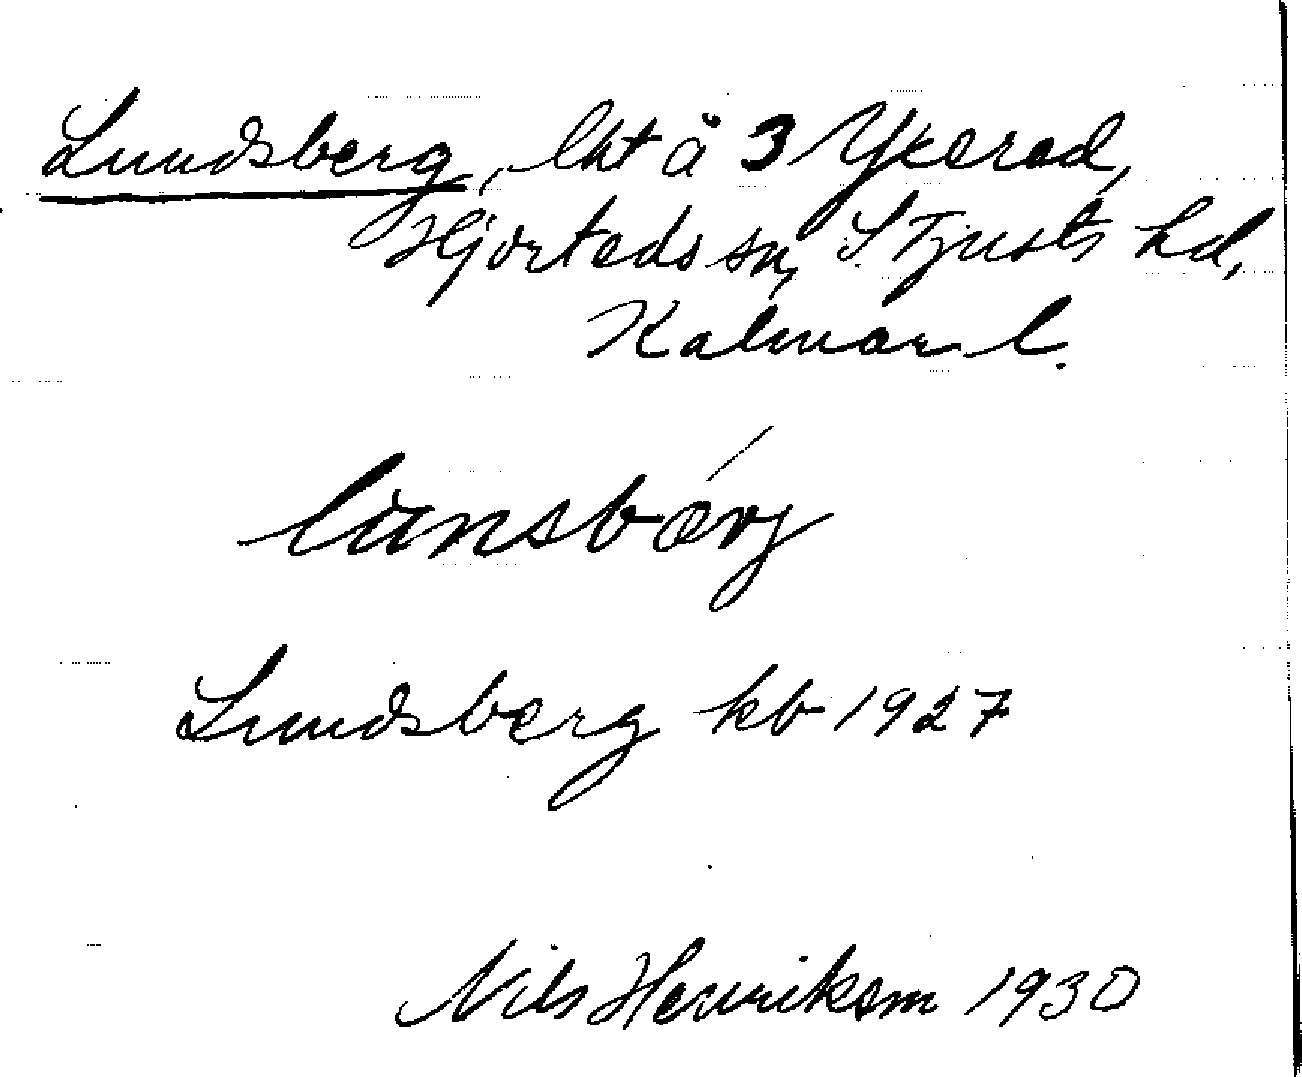 Lundsberg, lht å 3 Ykered,
Hjorteds sn, S. Tjusts hd,
Kalmar l.
lunsbærj
Lundsberg kb 1927
Nils Henrikson 1930